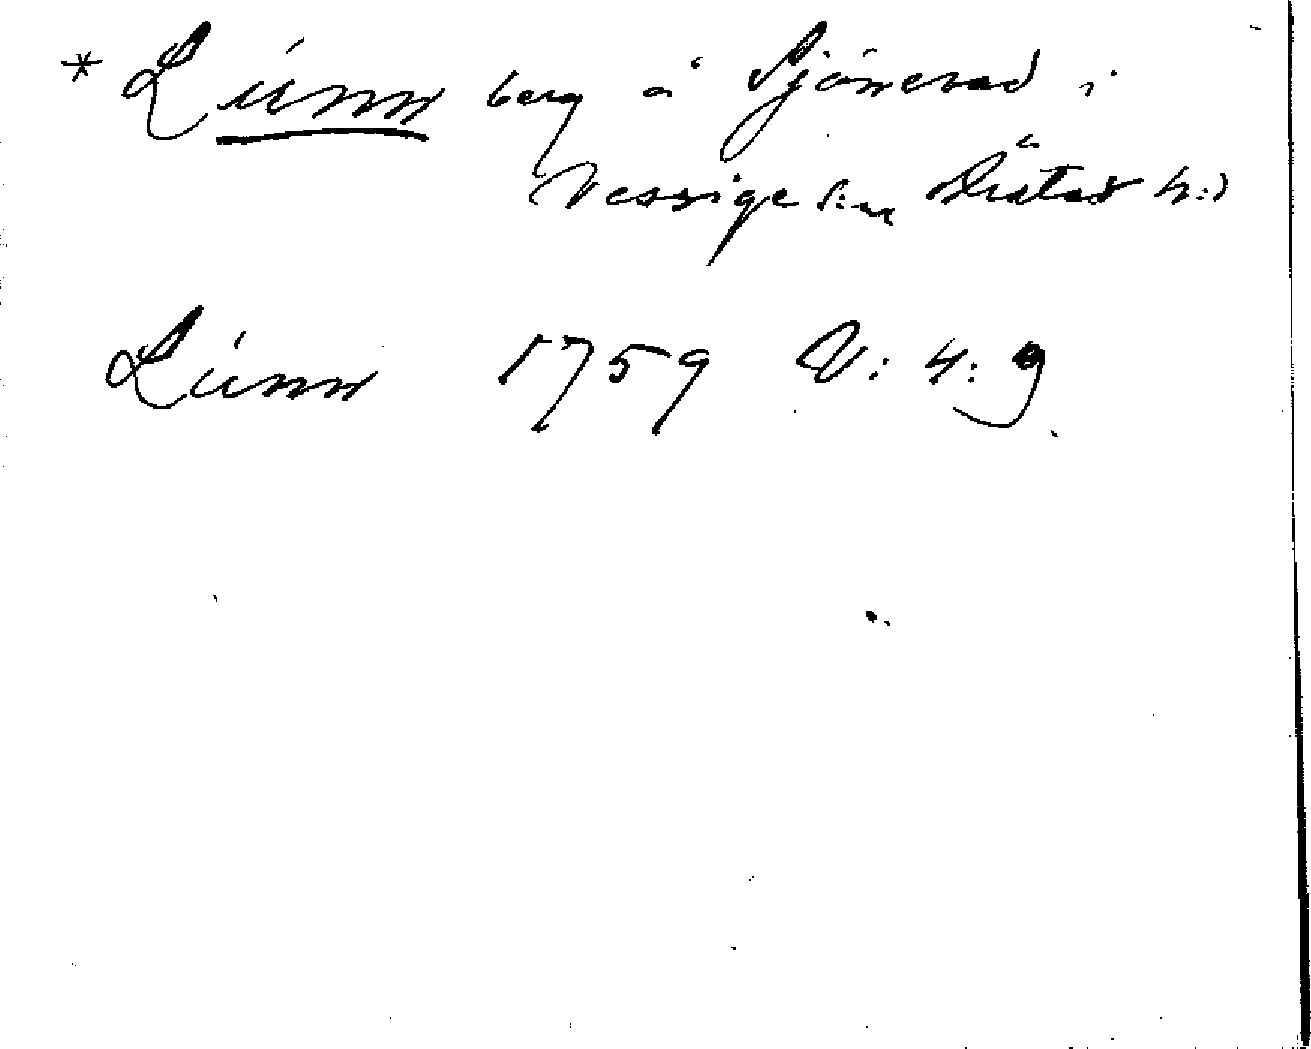 * Lunn berg å Sjönevad i
Vessige s:n Årstad h:d
Lunn 1759 V: 4: 9